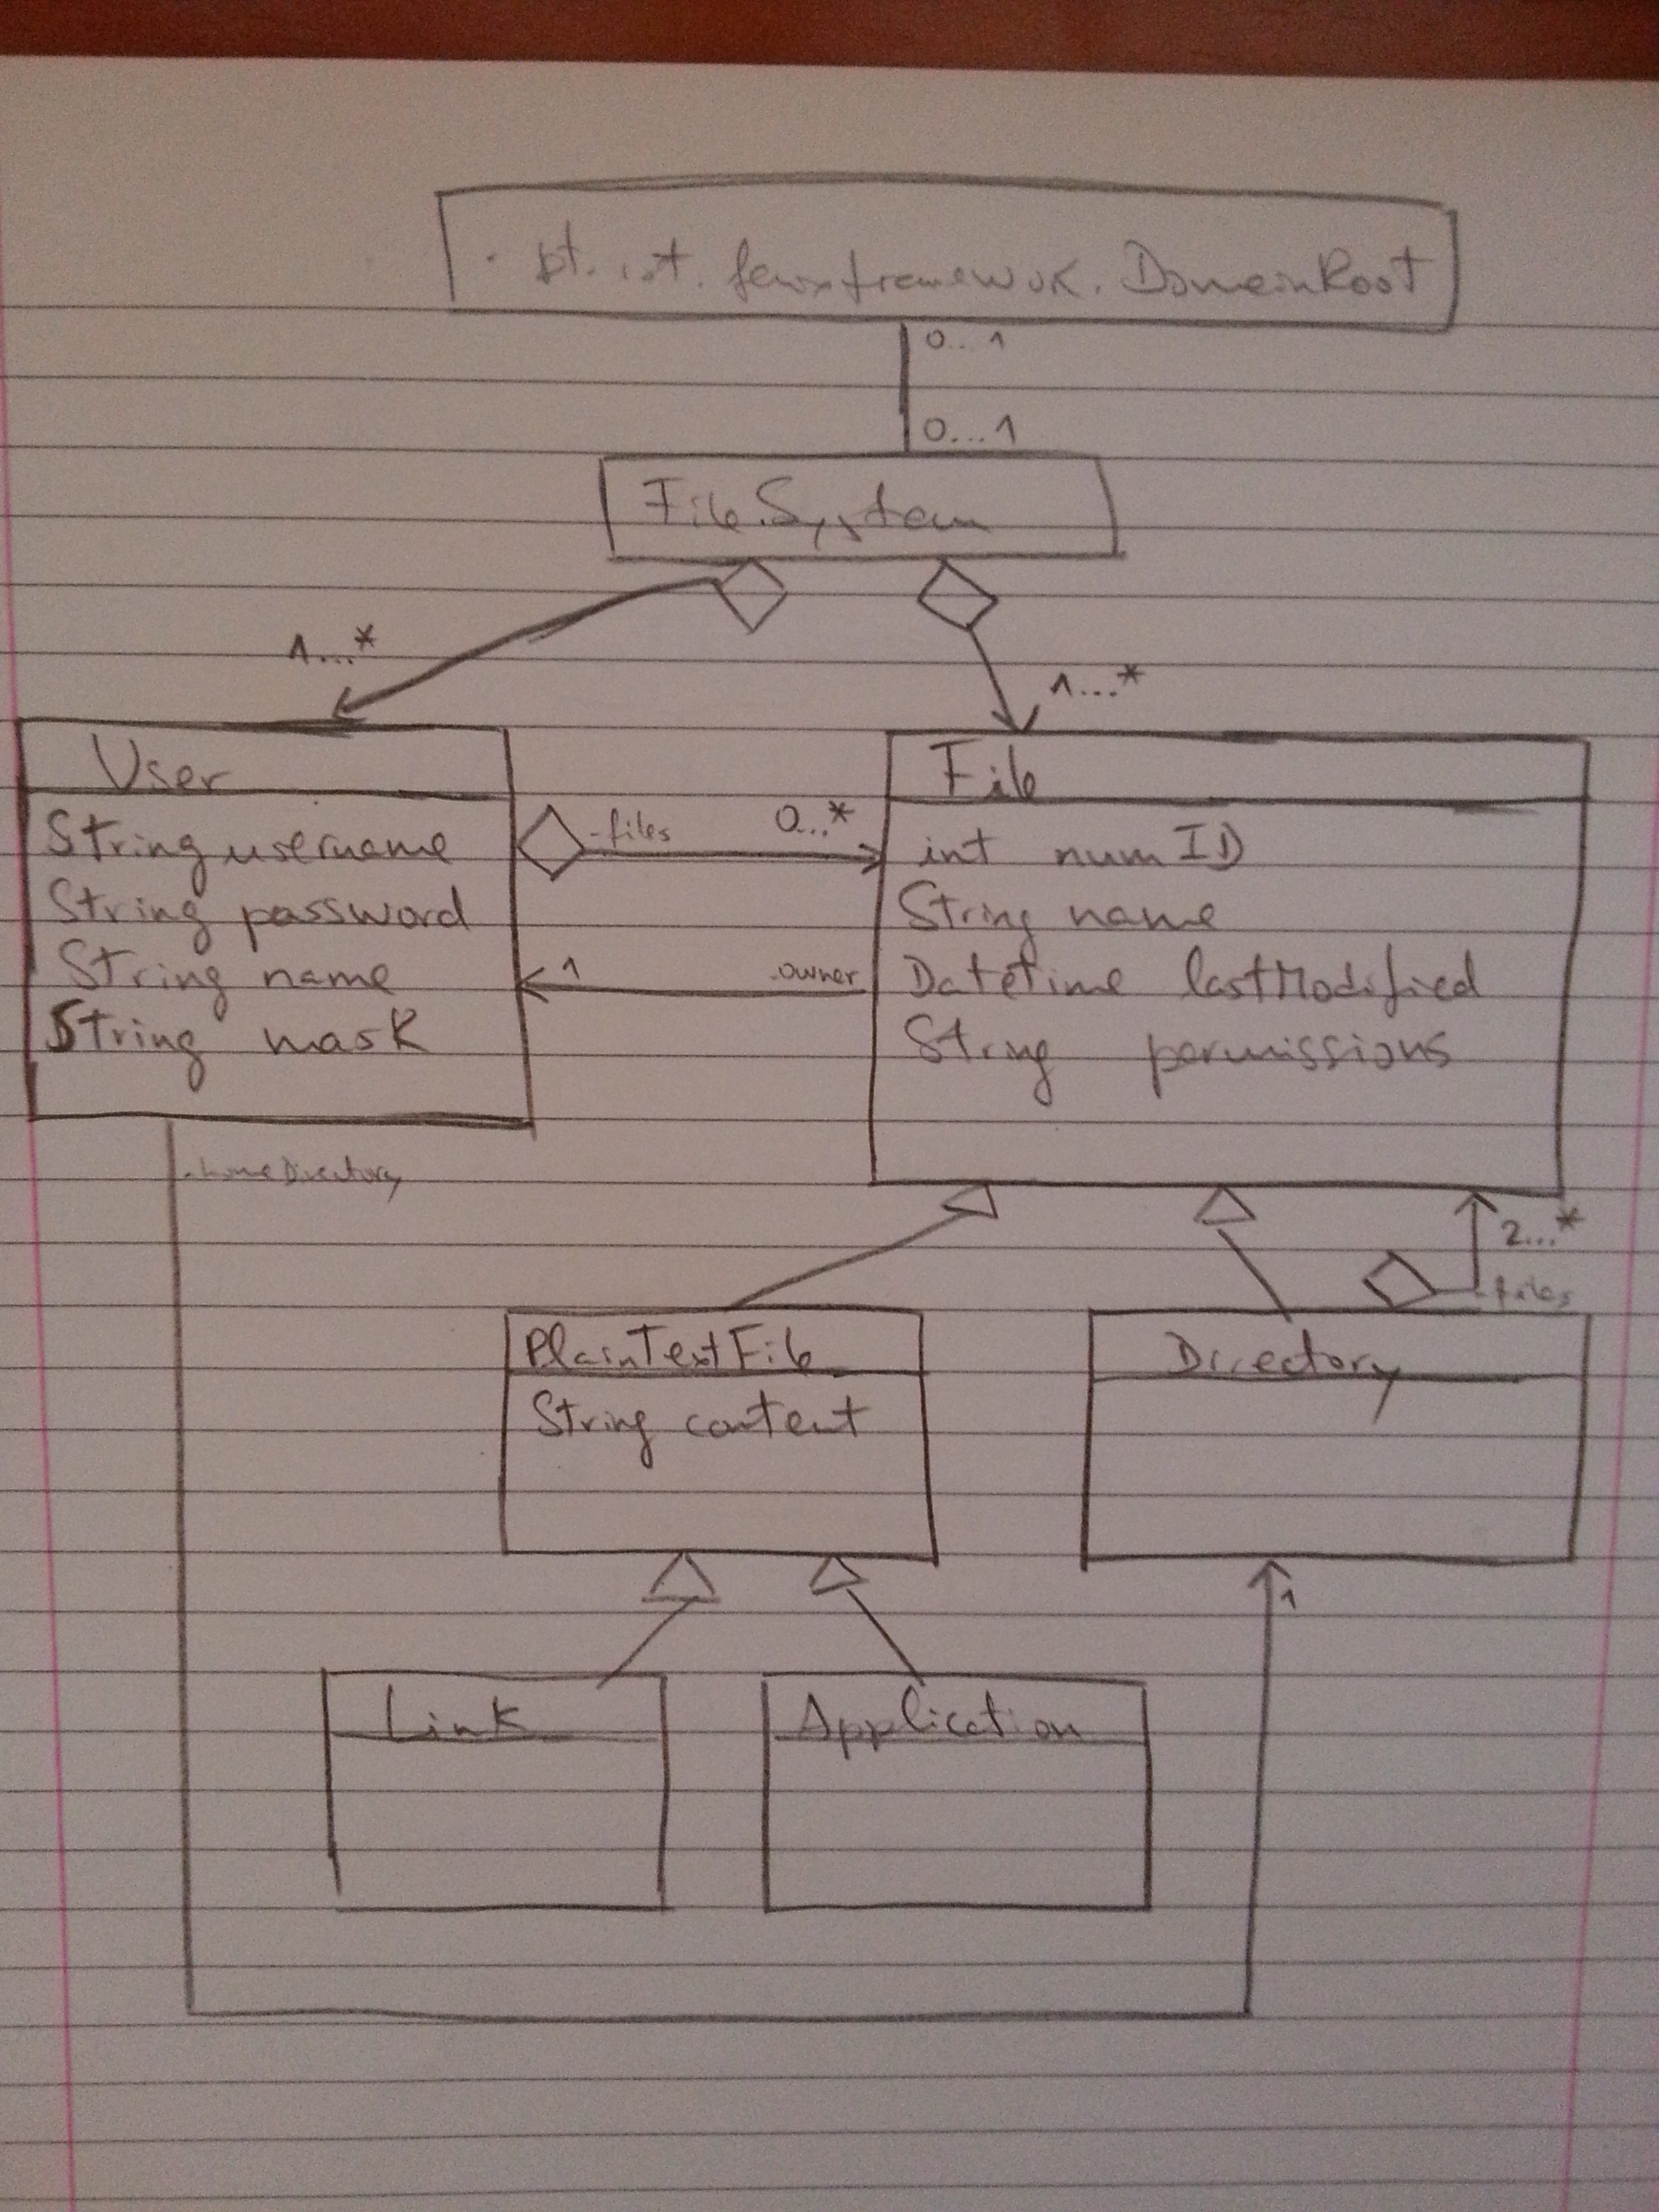 . pt.ist.fenixframework.DomainRoot
0..1
0...1
FileSystem
1...*
1...*
User
File
String username
String password
String name
String mask
- files
0...*
1
.owner
int numID
String name
Datetime lastModified
String permissions
- homeDirectory
2...*
- files
PlainTextFile
String content
Directory
1
Link
Application